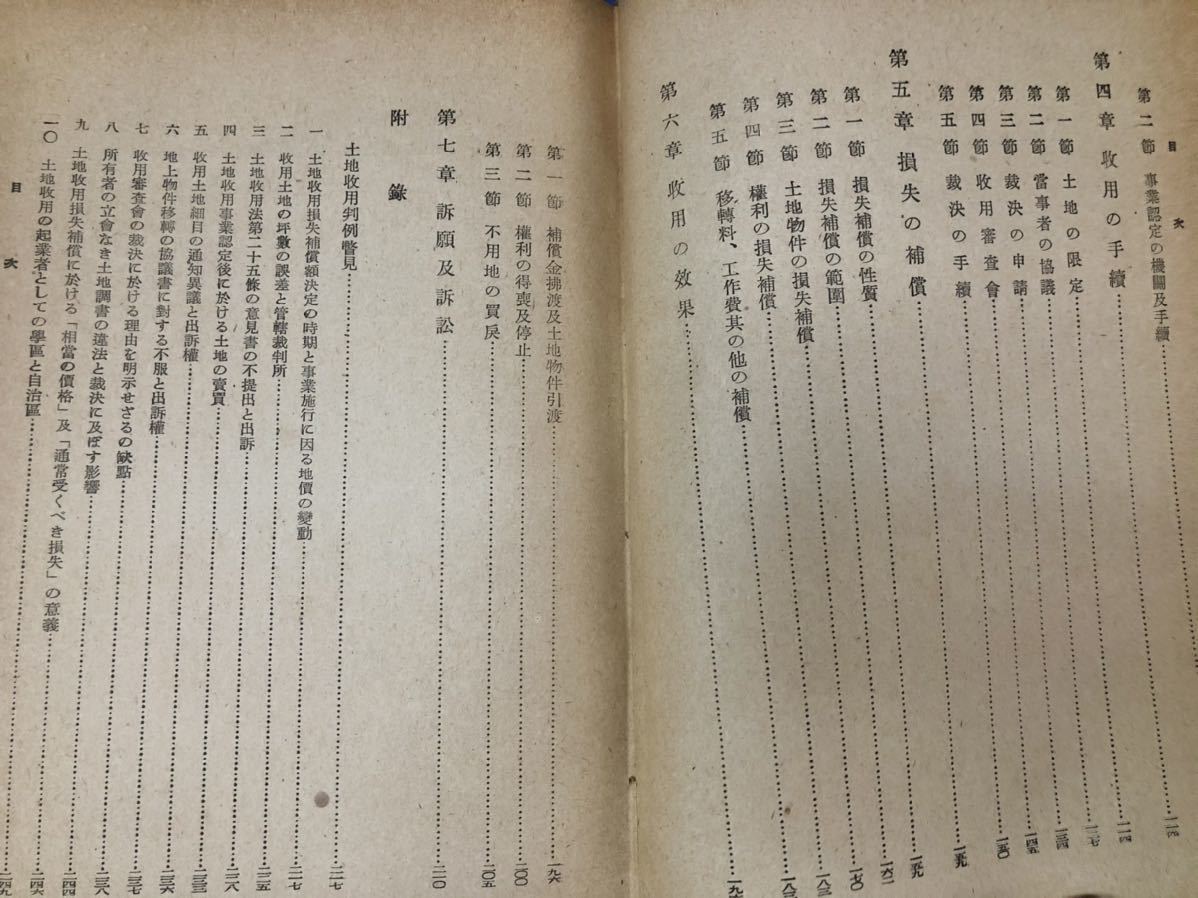 目次
第二節 事業認定の機關及手續……一一四
第四章 收用の手續……一一四
第一節 土地の限定……一二七
第二節 當事者の協議……一三四
第三節 裁決の申請……一四五
第四節 收用審査會……一五〇
第五節 裁決の手續……一五九
第五章 損失の補償……一五九
第一節 損失補償の性質……一六二
第二節 損失補償の範圍……一七〇
第三節 土地物件の損失補償……一八三
第四節 權利の損失補償……一八三
第五節 移轉料、工作費其の他の補償
第六章 收用の效果……一九六
第一節 補償金拂渡及土地物件引渡……一九六
第二節 權利の得喪及停止……二〇〇
第三節 不用地の買戾……二〇五
第七章 訴願及訴訟……二一〇
附錄
土地收用判例瞥見……二一七
一 土地收用損失補償額決定の時期と事業施行に因る地價の變動……二一七
二 收用土地の坪數の誤差と管轄裁判所……二二五
三 土地收用法第二十五條の意見書の不提出と出訴……二二八
四 土地收用事業認定後に於ける土地の賣買……二三三
五 收用土地細目の通知異議と出訴權……二三六
六 地上物件移轉の協議書に對する不服と出訴權……二三七
七 收用審査會の裁決に於ける理由を明示せざるの缺點……二三八
八 所有者の立會なき土地調書の違法と裁決に及ぼす影響……二四四
九 土地收用損失補償に於ける「相當の價格」及「通常受くべき損失」の意義……二四六
一〇 土地收用の起業者としての學區と自治區……二四九
目次